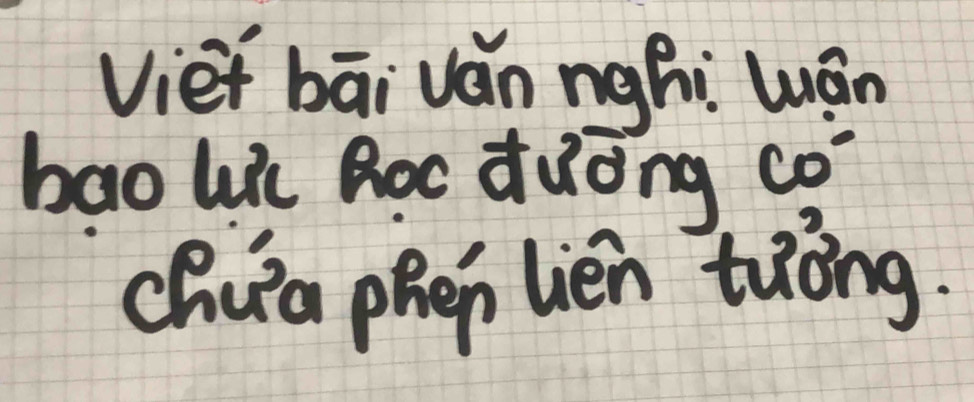 Viết bài văn nghị luận
bạo lực học đường có
chứa phép liên tưởng.